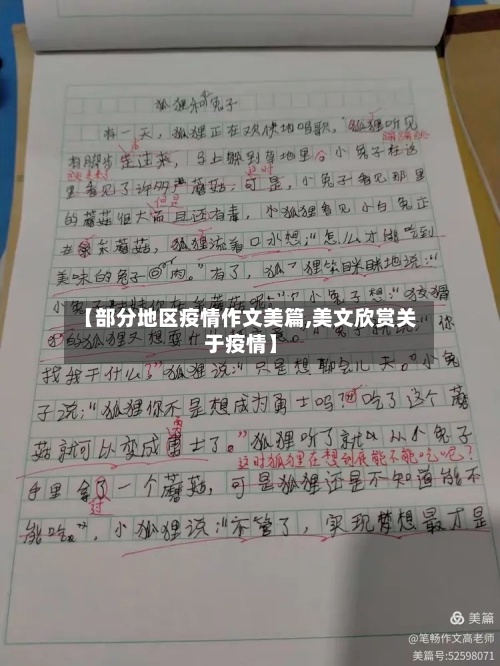 狐狸和兔子
有一天，狐狸正在欢快地唱歌，狐狸听见
有脚步走过来，马上躲到草地里。小兔子在这
里看见了许多蘑菇，可是，小兔子看见那里
的蘑菇但大而且还有毒，小狐狸看见小白兔正
在采蘑菇，狐狸流着口水想：“怎么才能吃到
美味的兔子肉。”有了，狐狸笑眯眯地说：“
小兔子
小兔子想：“狡猾
的狐狸又想
你
【部分地区疫情作文美篇,美文欣赏关
于疫情】
找我干什么？”狐狸说：“只是想聊会儿天。”小兔
子说：“狐狸你不是想成为勇士吗？吃了这个蘑
菇就可以变成勇士了。”狐狸听了就从小兔子
这时狐狸在想到底能不能吃呢？
手里拿了一个蘑菇，可是狐狸还是不知道能不
能吃”，小狐狸说：“不管了，实现梦想最才是
美篇
@笔畅作文高老师
美篇号:52598071